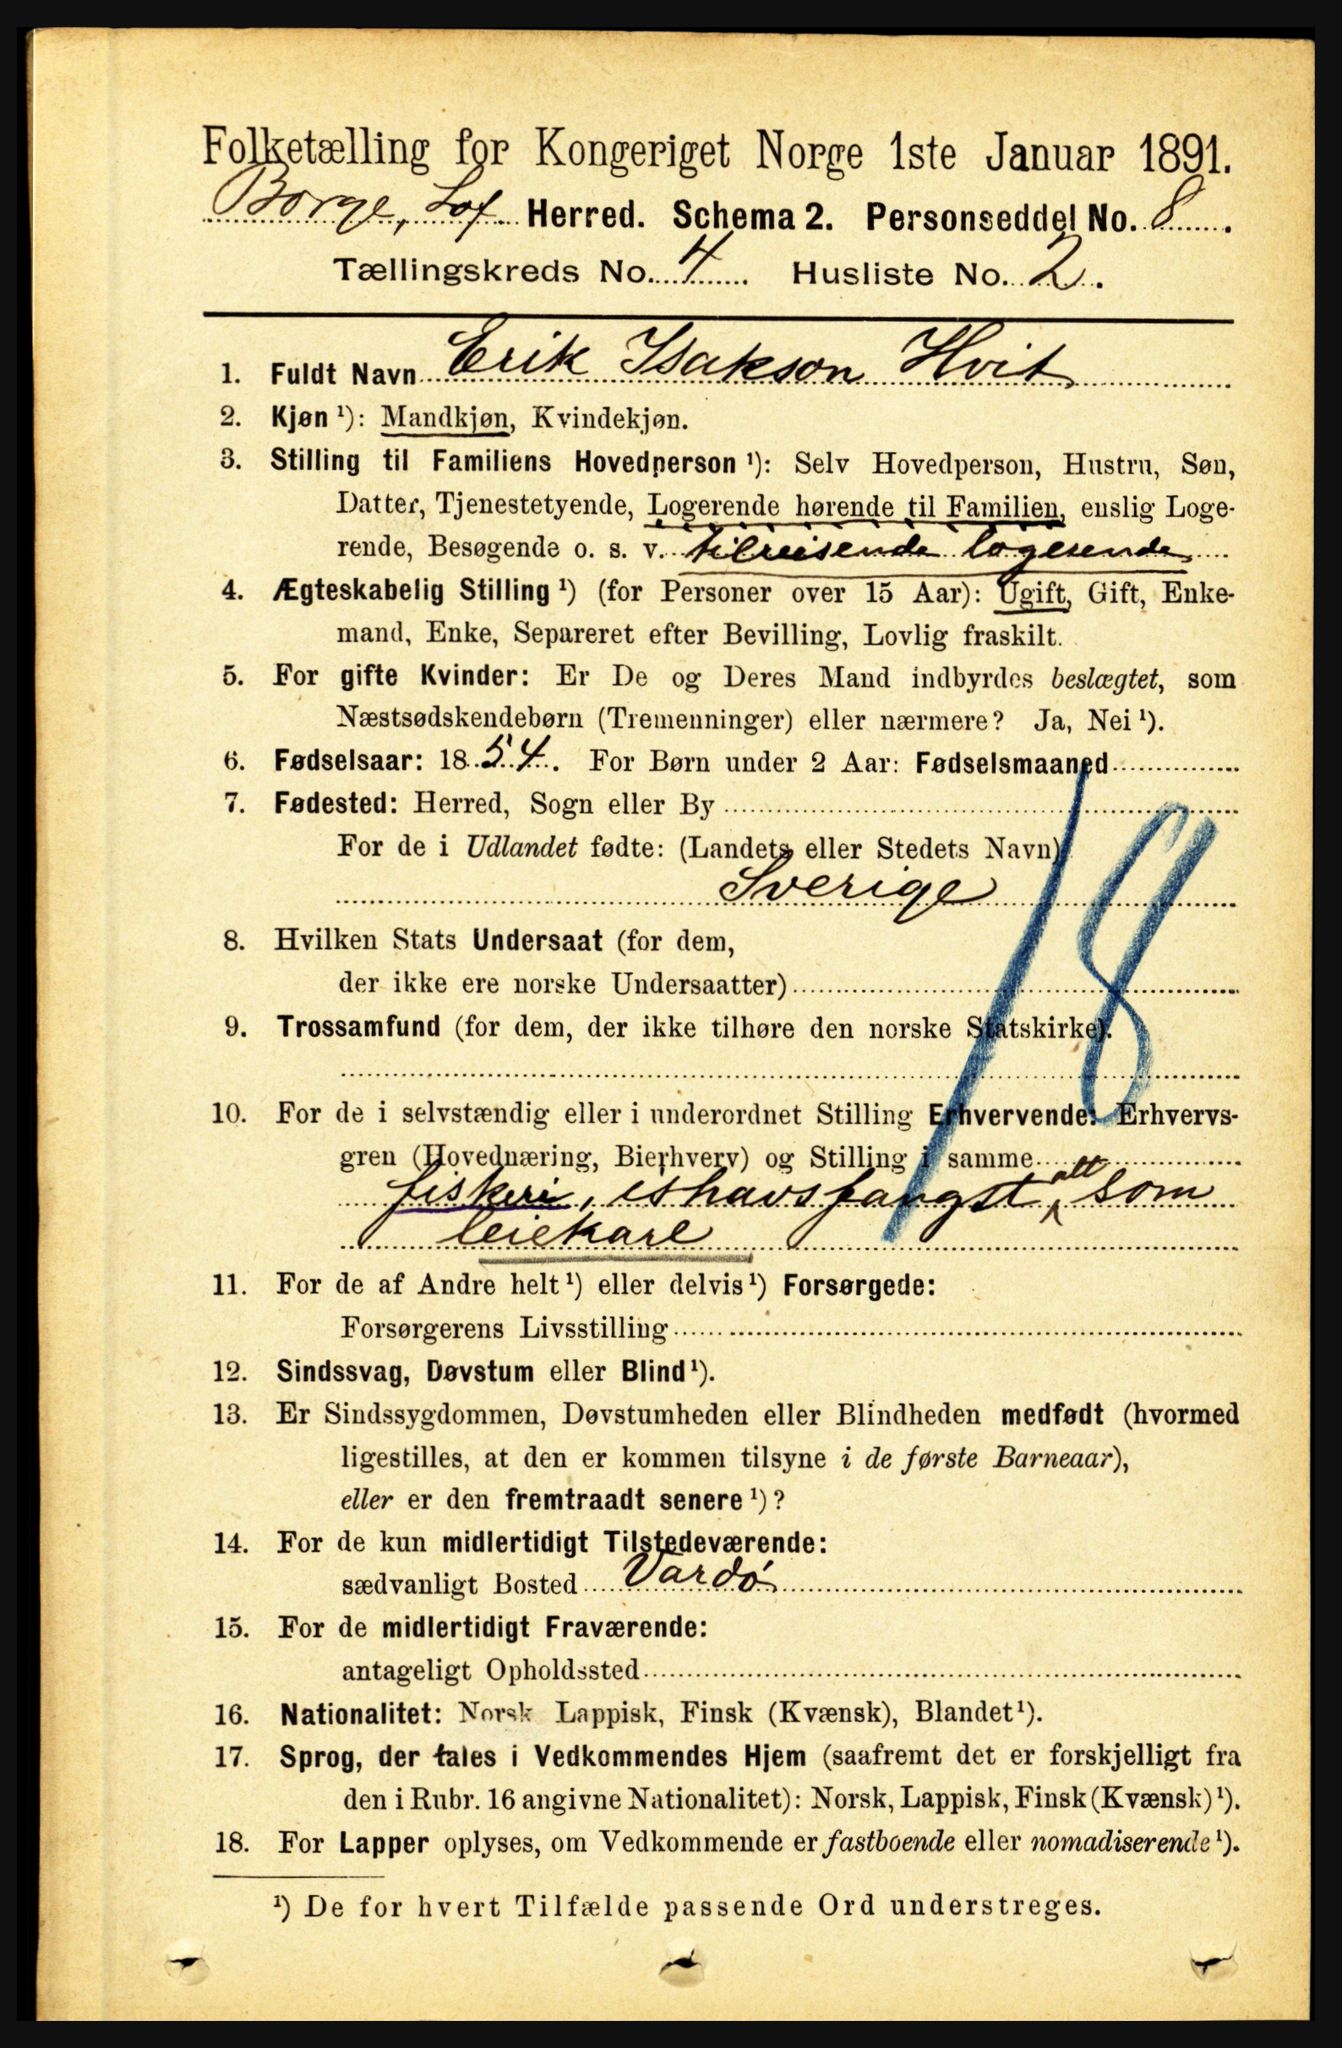 Folketælling for Kongeriget Norge 1ste Januar 1891.
Borge, Lof. Herred. Schema 2. Personseddel No. 8.
Tællingskreds No. 4 Husliste No. 2.
1. Fuldt Navn Erik Isakson Hvit
2. Kjøn ¹): Mandkjøn, Kvindekjøn.
3. Stilling til Familiens Hovedperson ¹): Selv Hovedperson, Hustru, Søn,
Datter, Tjenestetyende, Logerende hørende til Familien, enslig Loge-
rende, Besøgende o. s. v. tilreisende logerende
4. Ægteskabelig Stilling ¹) (for Personer over 15 Aar): Ugift, Gift, Enke-
mand, Enke, Separeret efter Bevilling, Lovlig fraskilt.
5. For gifte Kvinder: Er De og Deres Mand indbyrdes beslægtet, som
Næstsødskendebørn (Tremenninger) eller nærmere? Ja, Nei ¹).
6. Fødselsaar: 1854. For Børn under 2 Aar: Fødselsmaaned
7. Fødested: Herred, Sogn eller By
For de i Udlandet fødte: (Landets eller Stedets Navn)
Sverige
18
8. Hvilken Stats Undersaat (for dem,
der ikke ere norske Undersaatter)
9. Trossamfund (for dem, der ikke tilhøre den norske Statskirke).
10. For de i selvstændig eller i underordnet Stilling Erhvervende: Erhvervs-
gren (Hovednæring, Bierhverv) og Stilling i samme
fiskeri, ishavsfangst alt som
leiekarl
11. For de af Andre helt ¹) eller delvis ¹) Forsørgede:
Forsørgerens Livsstilling
12. Sindssvag, Døvstum eller Blind ¹).
13. Er Sindssygdommen, Døvstumheden eller Blindheden medfødt (hvormed
ligestilles, at den er kommen tilsyne i de første Barneaar),
eller er den fremtraadt senere ¹)?
14. For de kun midlertidigt Tilstedeværende:
sædvanligt Bosted Vardø
15. For de midlertidigt Fraværende:
antageligt Opholdssted
16. Nationalitet: Norsk Lappisk, Finsk (Kvænsk), Blandet ¹).
17. Sprog, der tales i Vedkommendes Hjem (saafremt det er forskjelligt fra
den i Rubr. 16 angivne Nationalitet): Norsk, Lappisk, Finsk (Kvænsk) ¹).
18. For Lapper oplyses, om Vedkommende er fastboende eller nomadiserende ¹).
¹) De for hvert Tilfælde passende Ord understreges.